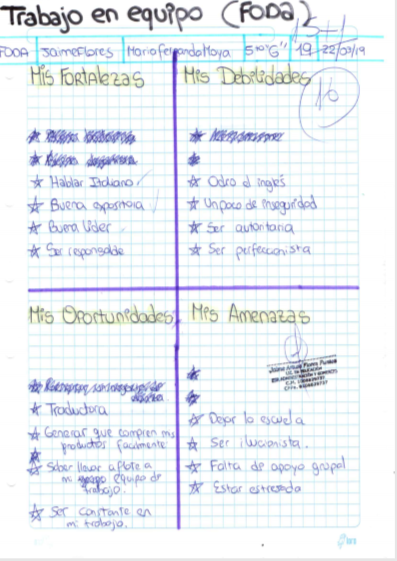 Trabajo en equipo (FODA)
15+1
FODA Jaime Flores Maria Fernanda Moya 5to "G" 19 22/03/19
Mis Fortalezas
Mis Debilidades
16
Hablar Italiano
Buena expositora
Buena lider
Ser responsable
Odio el inglés
Un poco de inseguridad
Ser autoritaria
Ser perfeccionista
Mis Oportunidades
Mis Amenazas
Traductora
Generar que compren mis
productos facilmente
Saber llevar a flote a
mi equipo de
trabajo.
Ser constante en
mi trabajo.
Dejar la escuela
Ser ilucionista.
Falta de apoyo grupal
Estar estresada